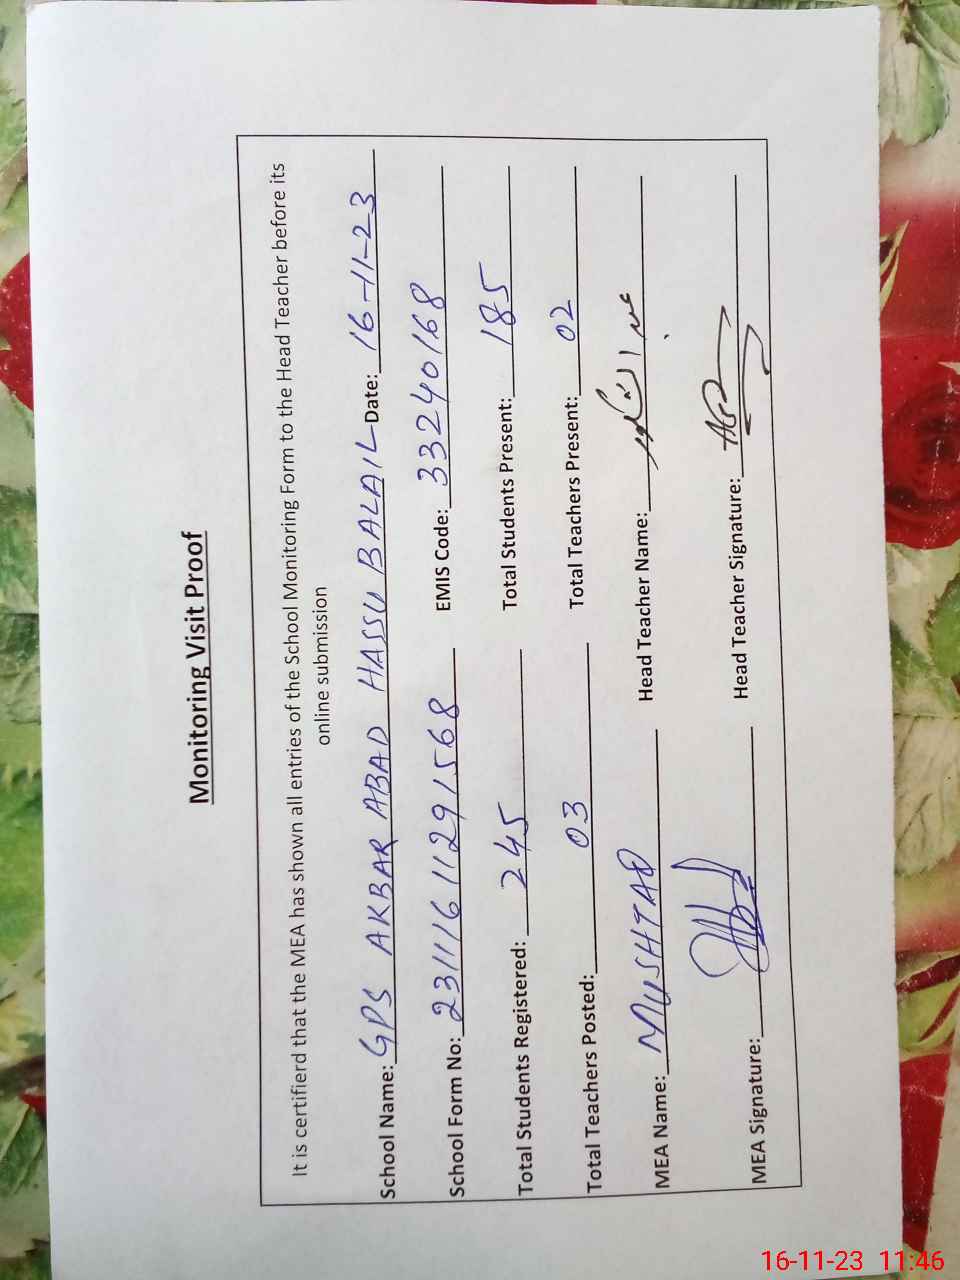 Monitoring Visit Proof
It is certifierd that the MEA has shown all entries of the School Monitoring Form to the Head Teacher before its
online submission
School Name: GPS AKBAR ABAD HASSU BALAIL Date: 16-11-23
School Form No: 2311161129 1568 EMIS Code: 33240168
Total Students Registered: 245 Total Students Present: 185
Total Teachers Posted: 03 Total Teachers Present: 02
MEA Name: MUSHTAQ Head Teacher Name: عبد الشکور
MEA Signature: Head Teacher Signature:
16-11-23 11:46